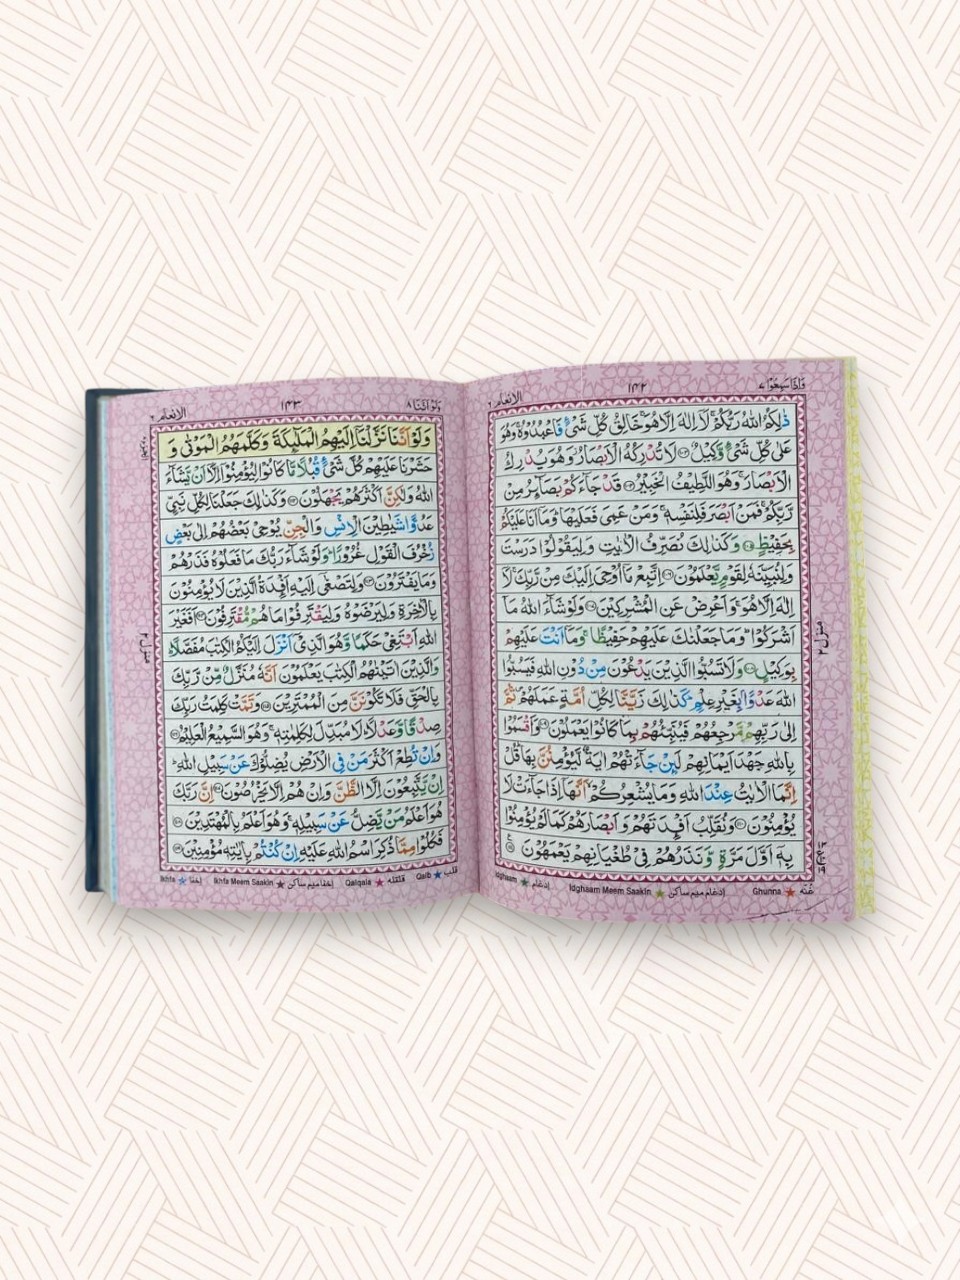 فَاِذَا سَمِعُوْا ٧
١٤٢
الانعام ٦
ذٰلِكُمُ اللّٰهُ رَبُّكُمْ ۚ لَاۤ اِلٰهَ اِلَّا هُوَ ۚ خَالِقُ كُلِّ شَیْءٍ فَاعْبُدُوْهُ ۚ وَهُوَ
عَلٰی كُلِّ شَیْءٍ وَّكِیْلٌ ۝١٠٢ لَا تُدْرِكُهُ الْاَبْصَارُ ؗ وَهُوَ یُدْرِكُ
الْاَبْصَارَ ۚ وَهُوَ اللَّطِیْفُ الْخَبِیْرُ ۝١٠٣ قَدْ جَآءَكُمْ بَصَآىِٕرُ مِنْ
رَّبِّكُمْ ۚ فَمَنْ اَبْصَرَ فَلِنَفْسِهٖ ۚ وَمَنْ عَمِیَ فَعَلَیْهَا ؕ وَمَاۤ اَنَا عَلَیْكُمْ
بِحَفِیْظٍ ۝١٠٤ وَكَذٰلِكَ نُصَرِّفُ الْاٰیٰتِ وَلِیَقُوْلُوْا دَرَسْتَ
وَلِنُبَیِّنَهٗ لِقَوْمٍ یَّعْلَمُوْنَ ۝١٠٥ اِتَّبِعْ مَاۤ اُوْحِیَ اِلَیْكَ مِنْ رَّبِّكَ ۚ لَاۤ
اِلٰهَ اِلَّا هُوَ ۚ وَاَعْرِضْ عَنِ الْمُشْرِكِیْنَ ۝١٠٦ وَلَوْ شَآءَ اللّٰهُ مَاۤ
اَشْرَكُوْا ؕ وَمَا جَعَلْنٰكَ عَلَیْهِمْ حَفِیْظًا ۚ وَمَاۤ اَنْتَ عَلَیْهِمْ
بِوَكِیْلٍ ۝١٠٧ وَلَا تَسُبُّوا الَّذِیْنَ یَدْعُوْنَ مِنْ دُوْنِ اللّٰهِ فَیَسُبُّوا
اللّٰهَ عَدْوًۢا بِغَیْرِ عِلْمٍ ؕ كَذٰلِكَ زَیَّنَّا لِكُلِّ اُمَّةٍ عَمَلَهُمْ ۪ ثُمَّ
اِلٰی رَبِّهِمْ مَّرْجِعُهُمْ فَیُنَبِّئُهُمْ بِمَا كَانُوْا یَعْمَلُوْنَ ۝١٠٨ وَاَقْسَمُوْا
بِاللّٰهِ جَهْدَ اَیْمَانِهِمْ لَىِٕنْ جَآءَتْهُمْ اٰیَةٌ لَّیُؤْمِنُنَّ بِهَا ؕ قُلْ
اِنَّمَا الْاٰیٰتُ عِنْدَ اللّٰهِ وَمَا یُشْعِرُكُمْ ۙ اَنَّهَاۤ اِذَا جَآءَتْ لَا
یُؤْمِنُوْنَ ۝١٠٩ وَنُقَلِّبُ اَفْـِٕدَتَهُمْ وَاَبْصَارَهُمْ كَمَا لَمْ یُؤْمِنُوْا
بِهٖۤ اَوَّلَ مَرَّةٍ وَّنَذَرُهُمْ فِیْ طُغْیَانِهِمْ یَعْمَهُوْنَ ۝١١٠
منزل ٢
غُنّه Ghunna ادغام میم ساکن Idghaam Meem Saakin ادغام Idghaam
وَلَوْ اَنَّنَا ٨
١٤٣
الانعام ٦
وَلَوْ اَنَّنَا نَزَّلْنَاۤ اِلَیْهِمُ الْمَلٰٓىِٕكَةَ وَكَلَّمَهُمُ الْمَوْتٰی وَ
حَشَرْنَا عَلَیْهِمْ كُلَّ شَیْءٍ قُبُلًا مَّا كَانُوْا لِیُؤْمِنُوْۤا اِلَّاۤ اَنْ یَّشَآءَ
اللّٰهُ وَلٰكِنَّ اَكْثَرَهُمْ یَجْهَلُوْنَ ۝١١١ وَكَذٰلِكَ جَعَلْنَا لِكُلِّ نَبِیٍّ
عَدُوًّا شَیٰطِیْنَ الْاِنْسِ وَالْجِنِّ یُوْحِیْ بَعْضُهُمْ اِلٰی بَعْضٍ
زُخْرُفَ الْقَوْلِ غُرُوْرًا ؕ وَلَوْ شَآءَ رَبُّكَ مَا فَعَلُوْهُ فَذَرْهُمْ
وَمَا یَفْتَرُوْنَ ۝١١٢ وَلِتَصْغٰۤی اِلَیْهِ اَفْـِٕدَةُ الَّذِیْنَ لَا یُؤْمِنُوْنَ
بِالْاٰخِرَةِ وَلِیَرْضَوْهُ وَلِیَقْتَرِفُوْا مَا هُمْ مُّقْتَرِفُوْنَ ۝١١٣ اَفَغَیْرَ
اللّٰهِ اَبْتَغِیْ حَكَمًا وَّهُوَ الَّذِیْۤ اَنْزَلَ اِلَیْكُمُ الْكِتٰبَ مُفَصَّلًا ؕ
وَالَّذِیْنَ اٰتَیْنٰهُمُ الْكِتٰبَ یَعْلَمُوْنَ اَنَّهٗ مُنَزَّلٌ مِّنْ رَّبِّكَ
بِالْحَقِّ فَلَا تَكُوْنَنَّ مِنَ الْمُمْتَرِیْنَ ۝١١٤ وَتَمَّتْ كَلِمَتُ رَبِّكَ
صِدْقًا وَّعَدْلًا ؕ لَا مُبَدِّلَ لِكَلِمٰتِهٖ ۚ وَهُوَ السَّمِیْعُ الْعَلِیْمُ ۝١١٥
وَاِنْ تُطِعْ اَكْثَرَ مَنْ فِی الْاَرْضِ یُضِلُّوْكَ عَنْ سَبِیْلِ اللّٰهِ ؕ
اِنْ یَّتَّبِعُوْنَ اِلَّا الظَّنَّ وَاِنْ هُمْ اِلَّا یَخْرُصُوْنَ ۝١١٦ اِنَّ رَبَّكَ
هُوَ اَعْلَمُ مَنْ یَّضِلُّ عَنْ سَبِیْلِهٖ ۚ وَهُوَ اَعْلَمُ بِالْمُهْتَدِیْنَ ۝١١٧
فَكُلُوْا مِمَّا ذُكِرَ اسْمُ اللّٰهِ عَلَیْهِ اِنْ كُنْتُمْ بِاٰیٰتِهٖ مُؤْمِنِیْنَ ۝١١٨
قلب Qalb قلقله Qalqala إخفا میم ساکن Ikhfa Meem Saakin إخفا Ikhfa